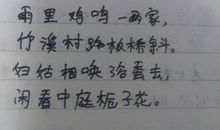 雨里鸡鸣一两家，
竹溪村路板桥斜。
妇姑相唤浴蚕去，
闲看中庭栀子花。